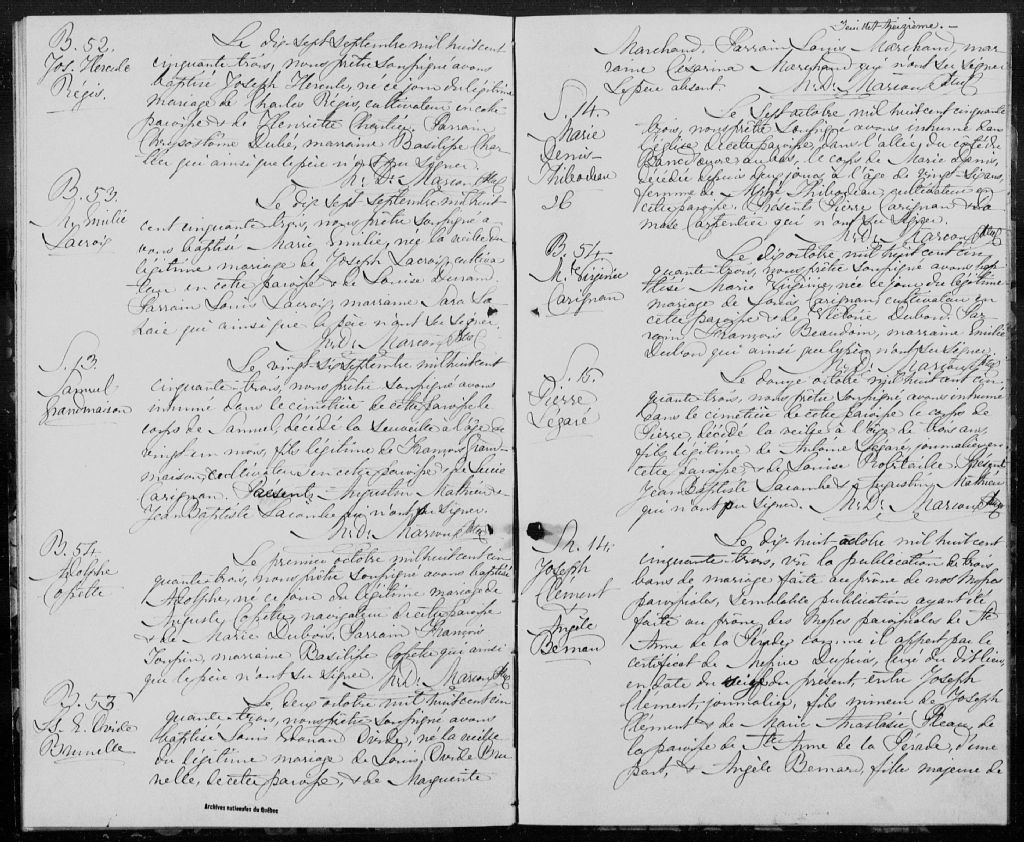 B. 52.
Jos. Hercule
Régis.
Le dix-sept septembre mil huit cent
cinquante-trois, nous prêtre soussigné avons
baptisé Joseph Hercule, né ce jour du légitime
mariage de Charles Régis, cultivateur en cette
paroisse & de Henriette Chartier. Parrain
Chrysostôme Dubé, marraine Basilisse Char-
tier qui ainsi que le père n'ont su signer.
Mr. Ds. Marcoux Ptre
B. 53.
M. Emilie
Lacroix
Le dix-sept septembre mil huit
cent cinquante-trois, nous prêtre soussigné a-
vons baptisé Marie Emilie, née la veille du
légitime mariage de Joseph Lacroix, cultiva-
teur en cette paroisse & de Louise Durand.
Parrain Louis Lacroix, marraine Sara
qui ainsi que le père n'ont su signer.
Mr. Ds. Marcoux Ptre
S. 13.
Samuel
Grandmaison
Le vingt-six septembre mil huit cent
cinquante-trois, nous prêtre soussigné avons
inhumé dans le cimetière de cette paroisse le
corps de Samuel, décédé la surveille à l'âge de
vingt-un mois, fils légitime de François Grand-
maison, cultivateur en cette paroisse & de Lucie
Carignan. Présents Augustin Mathieu &
Jean Baptiste Lacombe qui n'ont pu signer.
Mr. Ds. Marcoux Ptre
B. 54
Adolphe
Copette
Le premier octobre mil huit cent cin-
quante-trois, nous prêtre soussigné avons baptisé
Adolphe, né ce jour du légitime mariage de
Auguste Copette, navigateur de cette paroisse
& de Marie Dubois. Parrain François
marraine Basilisse Copette qui ainsi
que le père n'ont su signer. Mr. Ds. Marcoux Ptre
B. 53
Ls. E. Ovide
Brunelle
Le deux octobre mil huit cent cin-
quante-trois, nous prêtre soussigné avons
baptisé Louis Edouard Ovide, né la veille
du légitime mariage de Louis Ovide Bru-
nelle, de cette paroisse, & de Marguerite
Archives nationales du Québec
Feuillet treizième.-
Marchand. Parrain Louis Marchand, mar-
raine Césarina Marchand qui n'ont su signer
Le père absent. Mr. Ds. Marcoux Ptre
S. 14.
Marie
Denis-
Thibodeau
26
Le sept octobre mil huit cent cinquante
trois, nous prêtre soussigné avons inhumé dans
l'église de cette paroisse, dans l'allée du côté du
Banc d'œuvre au bas, le corps de Marie Denis,
décédée depuis deux jours à l'âge de vingt-six ans,
femme de Thibodeau, cultivateur en
cette paroisse. Présents Pierre Carignan & Da-
mase Carpentier qui n'ont su signer.
Mr. Ds. Marcoux Ptre
B. 54
M. Virginie
Carignan
Le dix octobre, mil huit cent cin-
quante-trois, nous prêtre soussigné avons bap-
tisé Marie Virginie, née ce jour du légitime
mariage de Louis Carignan, cultivateur en
cette paroisse & de Victoire Dubord. Par-
rain François Beaudoin, marraine Emilie
Dubord qui ainsi que le père n'ont su signer.
Mr. Ds. Marcoux Ptre
S. 15.
Pierre
Légaré
Le douze octobre mil huit cent cin-
quante-trois, nous prêtre soussigné avons inhumé
dans le cimetière de cette paroisse le corps de
Pierre, décédé la veille à l'âge de trois ans,
fils légitime de Antoine Légaré, journalier en
cette paroisse & de Louise Robitaille. Présents
Jean Baptiste Lacombe & Augustin Mathieu
qui n'ont pu signer. Mr. Ds. Marcoux Ptre
M. 14.
Joseph
Clément
&
Angèle
Bernard
Le dix-huit octobre mil huit cent
cinquante-trois, vu la publication de trois
bans de mariage faite au prône de nos messes
paroissiales, semblable publication ayant été
faite au prône des messes paroissiales de Ste
Anne de la Pérade, comme il appert par le
certificat de Messire Dupuis, curé du dit lieu,
en date du seize du présent, entre Joseph
Clément, journalier, fils mineur de Joseph
Clément & de Marie Anastasie Pleau, de
la paroisse de Ste Anne de la Pérade, d'une
part, & Angèle Bernard, fille majeure de